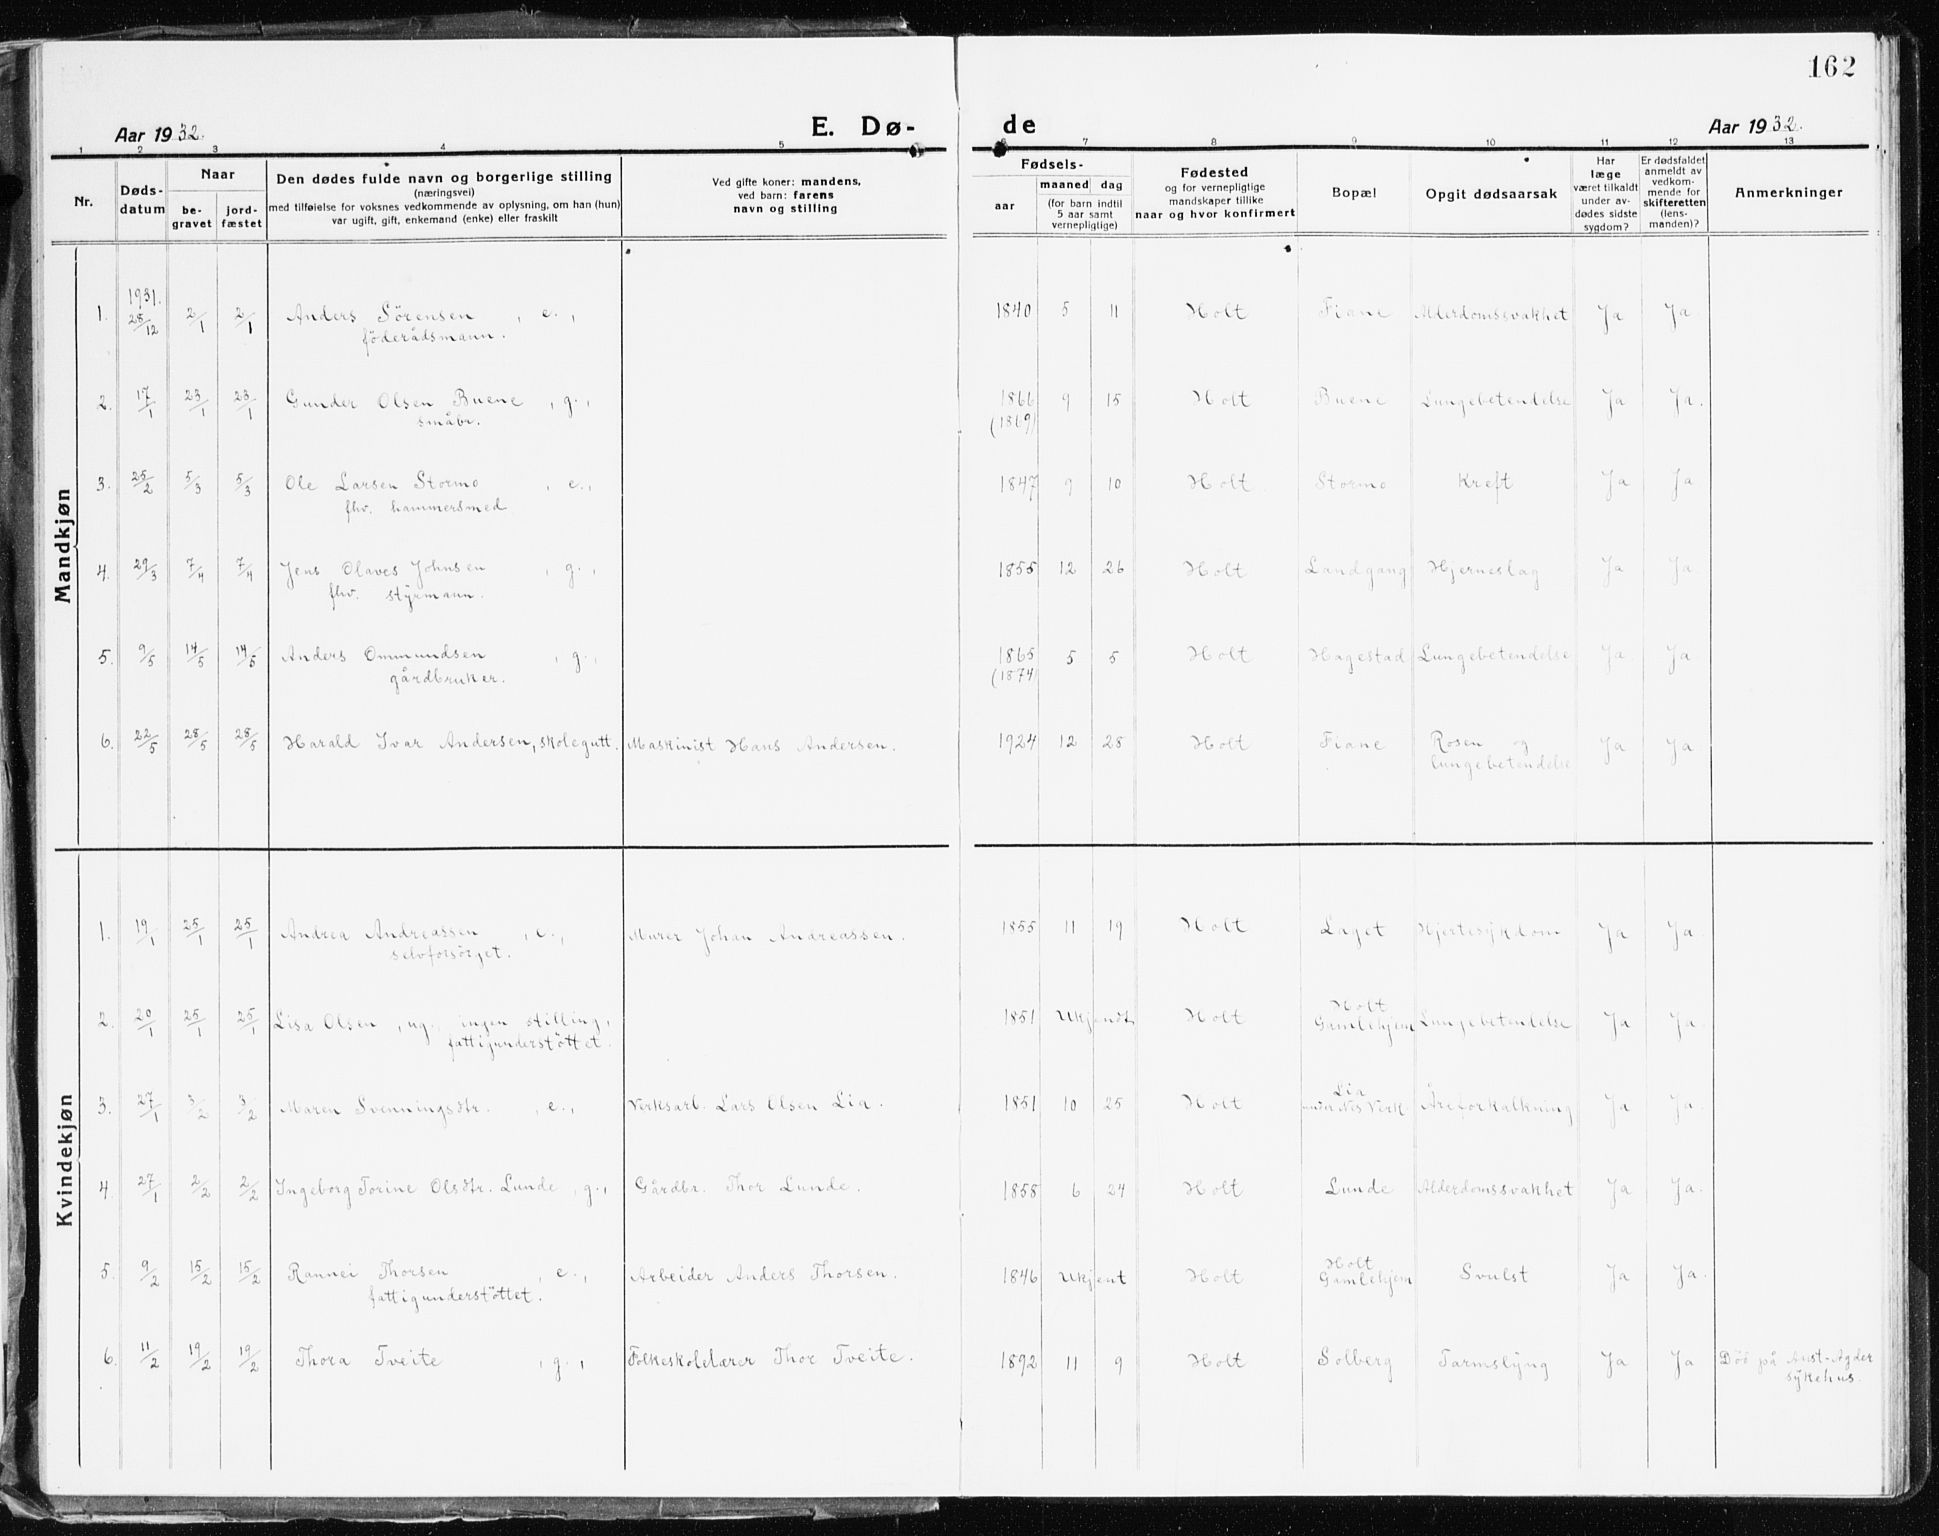 162
Aar 1932.
E. Dø-
de
Aar 1932.
1 2 3 4 5 6 7 8 9 10 11 12 13
Nr.
Døds-
datum
Naar
be-
gravet
jord-
fæstet
Den dødes fulde navn og borgerlige stilling
(næringsvei)
med tilføielse for voksnes vedkommende av oplysning, om han (hun)
var ugift, gift, enkemand (enke) eller fraskilt
Ved gifte koner: mandens,
ved barn: farens
navn og stilling
Fødsels-
aar
maaned dag
(for barn indtil
5 aar samt
vernepligtige)
Fødested
og for vernepligtige
mandskaper tillike
naar og hvor konfirmert
Bopæl
Opgit dødsaarsak
Har
læge
været tilkaldt
under av-
dødes sidste
sygdom?
Er dødsfaldet
anmeldt av
vedkom-
mende for
skifteretten
(lens-
manden)?
Anmerkninger
Mandkjøn
1931.
1. 28/12 2/1 2/1 Anders Sörensen, e., 1840 5 11 Holt Fiane Alderdomssvakhet Ja Ja.
föderådsmann.
2. 17/1 23/1 23/1 Gunder Olsen Buene, g., 1866 9 15 Holt Buene Lungebetendelse Ja Ja.
småbr. (1869)
3. 25/2 5/3 5/3 Ole Larsen Stormo, e., 1847 9 10 Holt Stormo Kreft Ja Ja
fhv. hammersmed
4. 29/3 7/4 7/4 Jens Olaves Johnsen, g., 1855 12 26 Holt Landgang Hjerneslag Ja Ja.
fhv. styrmann.
5. 9/5 14/5 14/5 Anders Ommundsen, g., 1865 5 5 Holt Hagestad Lungebetendelse Ja. Ja
gårdbruker. (1874)
6. 22/5 28/5 28/5 Harald Ivar Andersen, skolegutt. Maskinist Hans Andersen. 1924 12 28 Holt Fiane Rosen og Ja Ja.
lungebetendelse
Kvindekjøn
1. 19/1 25/1 25/1 Andrea Andreassen, e., Murer Johan Andreassen. 1855 11 19 Holt Laget Hjertesykdom Ja Ja.
selvforsörget.
Holt
2. 20/1 25/1 25/1 Lisa Olsen, ug., ingen stilling, 1851 Ukjendt Holt Gamlehjem Lungebetendelse Ja Ja.
fattigunderstöttet.
Lia
3. 27/1 3/2 3/2 Maren Svenningsdtr., e., Verksarb. Lars Olsen Lia. 1851 10 25 Holt under Nes Verk. Åreforkalkning Ja Ja.
4. 27/1 2/2 2/2 Ingeborg Torine Olsdtr. Lunde, g., Gårdbr. Thor Lunde. 1858 6 24 Holt Lunde Alderdomssvakhet Ja Ja.
Holt
5. 9/2 15/2 15/2 Rannei Thorsen, e., Arbeider Anders Thorsen. 1846 Ukjent Holt Gamlehjem Svulst Ja Ja.
fattigunderstöttet.
6. 11/2 19/2 19/2 Thora Tveite, g., Folkeskolelærer Thor Tveite. 1892 11 9 Holt Solberg Tarmslyng Ja Ja Död på Aust-Agder
sykehus.